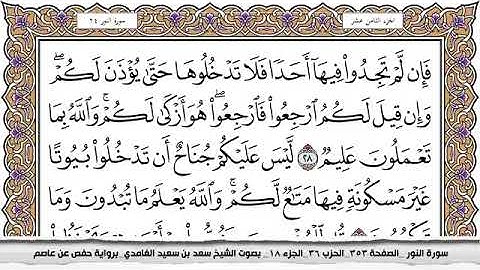 سورة النور ٢٤
الجزء الثامن عشر
فَإِن لَّمْ تَجِدُوا۟ فِيهَآ أَحَدًا فَلَا تَدْخُلُوهَا حَتَّىٰ يُؤْذَنَ لَكُمْ ۖ
وَإِن قِيلَ لَكُمُ ٱرْجِعُوا۟ فَٱرْجِعُوا۟ ۖ هُوَ أَزْكَىٰ لَكُمْ ۚ وَٱللَّهُ بِمَا
تَعْمَلُونَ عَلِيمٌ ٢٨ لَّيْسَ عَلَيْكُمْ جُنَاحٌ أَن تَدْخُلُوا۟ بُيُوتًا
غَيْرَ مَسْكُونَةٍ فِيهَا مَتَٰعٌ لَّكُمْ ۚ وَٱللَّهُ يَعْلَمُ مَا تُبْدُونَ وَمَا
سورة النور _ الصفحة ٣٥٣_ الحزب ٣٦_ الجزء ١٨_ بصوت الشيخ سعد بن سعيد الغامدي _برواية حفص عن عاصم